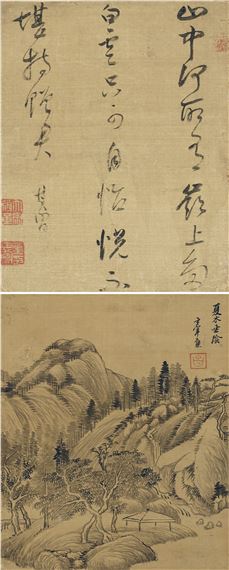 山中何所有嶺上多
白雲只可自怡悅不
堪持贈君
其昌
夏木垂陰
玄宰畫